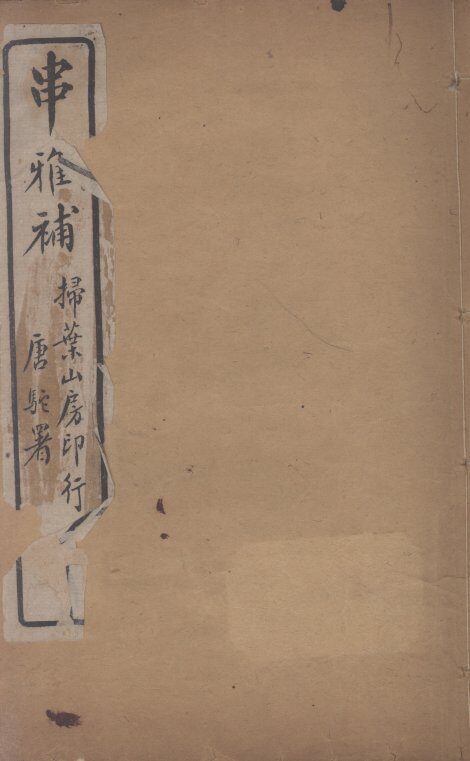 串雅補
掃葉山房印行
唐駝署